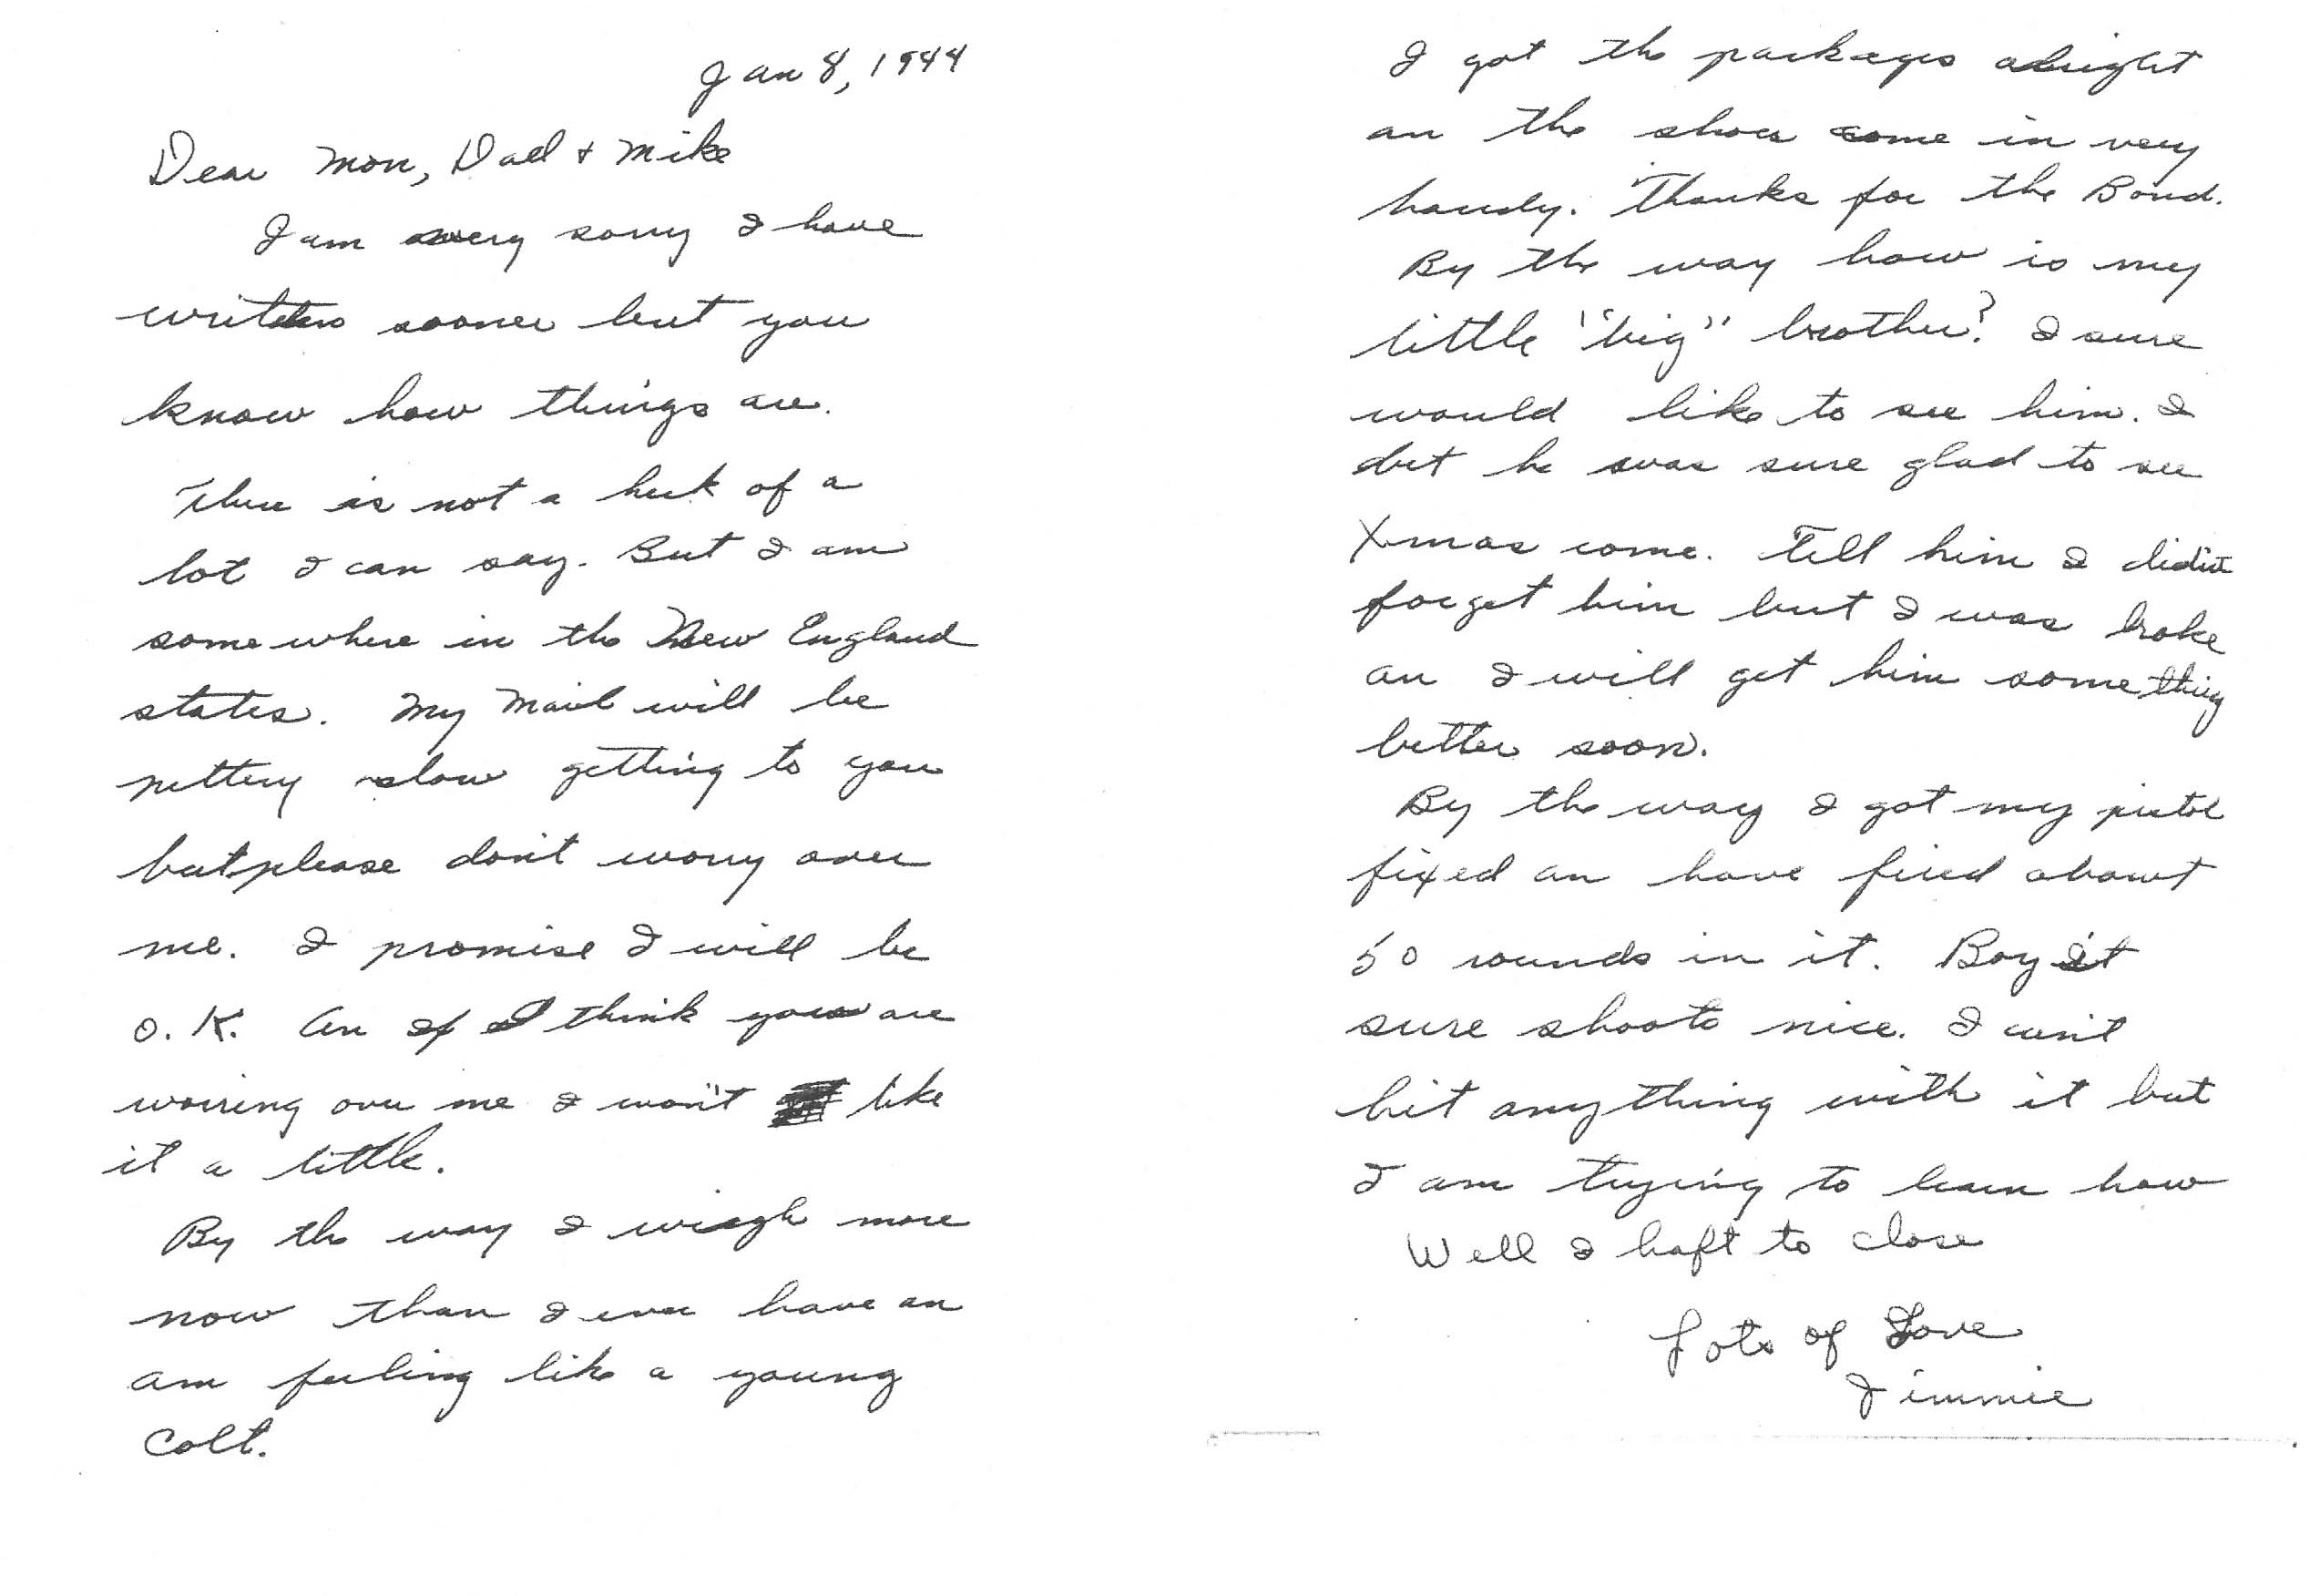 Jan 8, 1944
Dear Mom, Dad & Mike
I am very sorry I have
written sooner but you
know how things are.
There is not a heck of a
lot I can say. But I am
somewhere in the New England
states. My Mail will be
pettery slow getting to you
but please don't worry over
me. I promise I will be
O.K. An if I think you are
worring over me I won't like
it a little.
By the way I wiegh more
now than I ever have an
am feeling like a young
Colt.
I got the packages alright
an the shoes come in very
handy. Thanks for the Bond.
By the way how is my
little "big" brother? I sure
would like to see him. I
bet he was sure glad to see
Xmas come. Tell him I didn't
forget him but I was broke
an I will get him something
better soon.
By the way I got my pistol
fixed an have fired about
50 rounds in it. Boy it
sure shoots nice. I can't
hit anything with it but
I am trying to learn how
Well I haft to close
Lots of Love
Jimmie